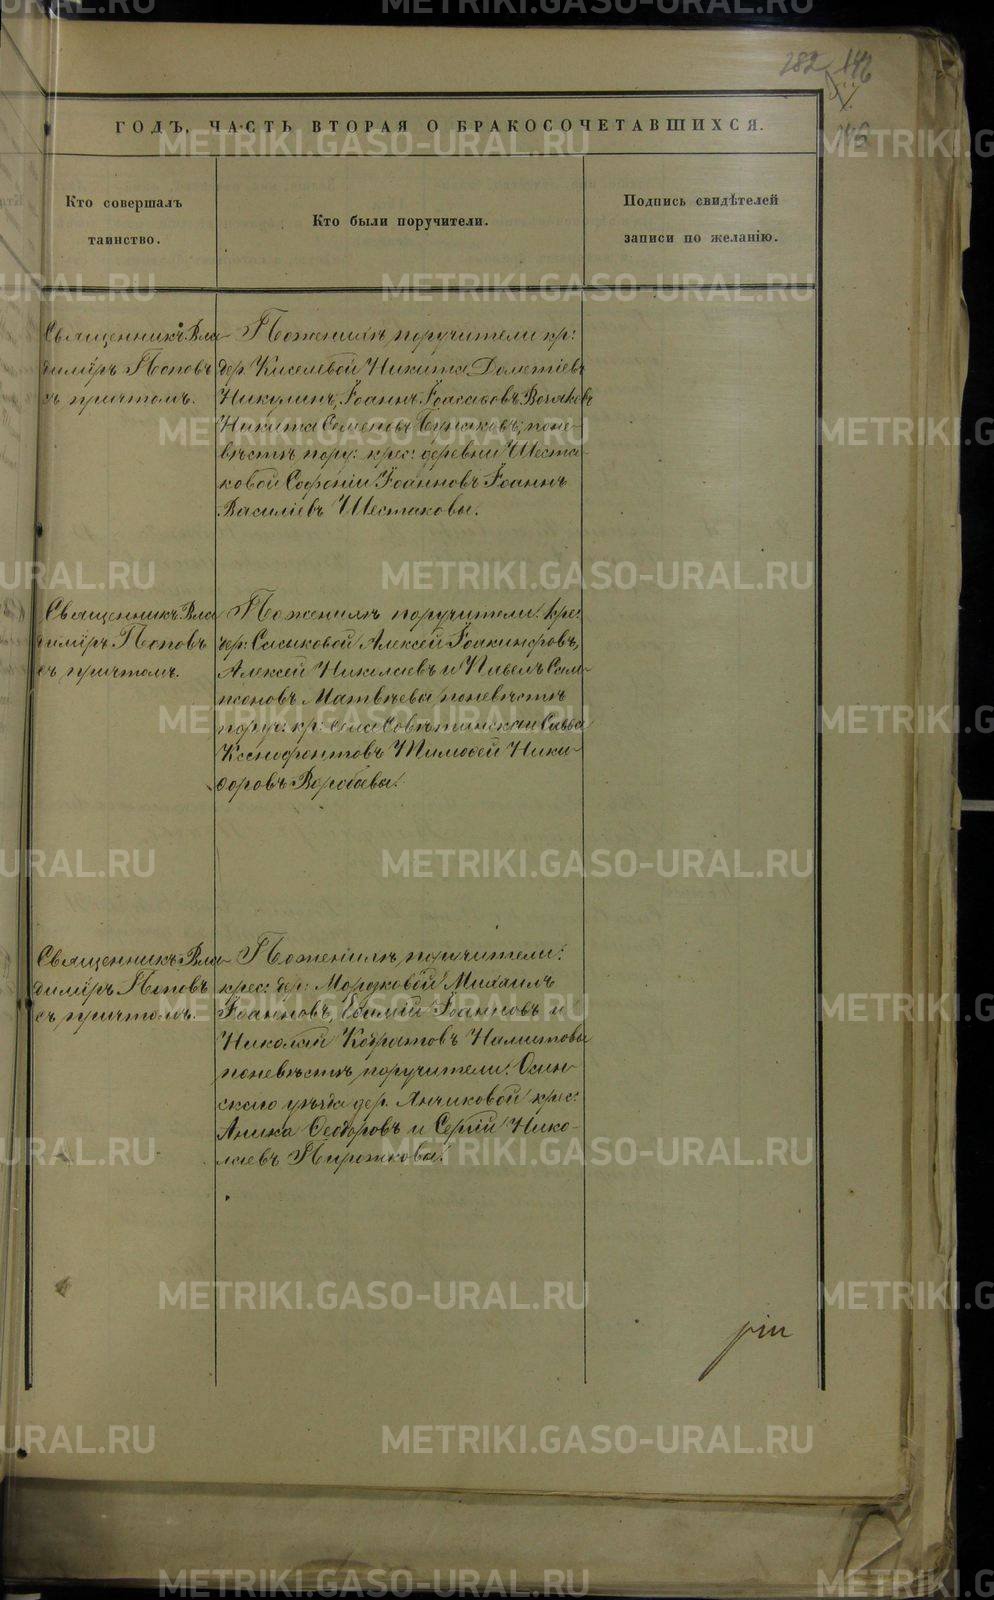 282
146
ГОДЪ, ЧАСТЬ ВТОРАЯ О БРАКОСОЧЕТАВШИХСЯ.
Кто совершалъ
таинство.
Кто были поручители.
Подпись свидѣтелей
записи по желанію.
Священникъ Вла
димiръ Поповъ
съ причтомъ.
Поженихѣ поручители кр:
дер. Киселевой Никита Дометіевъ
Никулинъ, Іоаннъ
Никита Семеновъ поне-
вѣстѣ пору: крес: деревни Шеста-
ковой Софоній Іоанновъ Іоаннъ
Василіевъ Шестаковы.
Священникъ Вла
димiръ Поповъ
съ причтомъ.
Поженихѣ поручители: крес:
дер: Сасыковой Алексѣй Іоакинфовъ,
Алексѣй Николаевъ и Павелъ Сам-
псоновъ Матвѣевы поневѣстѣ
поруч: кр: села Савва
Ксенофонтовъ Тимофей Ники-
форовъ
Священникъ Вла
димiръ Поповъ
съ причтомъ.
Поженихѣ поручители:
крес: дер: Михаилъ
Іоанновъ, Ефимій Іоанновъ и
Николай
поневѣстѣ поручители: Осин-
скаго уѣзда дер. Янчиковой крес:
Аника Феодоровъ и Сергій Нико-
лаевъ Пирожковы.
METRIKI.GASO-URAL.RU